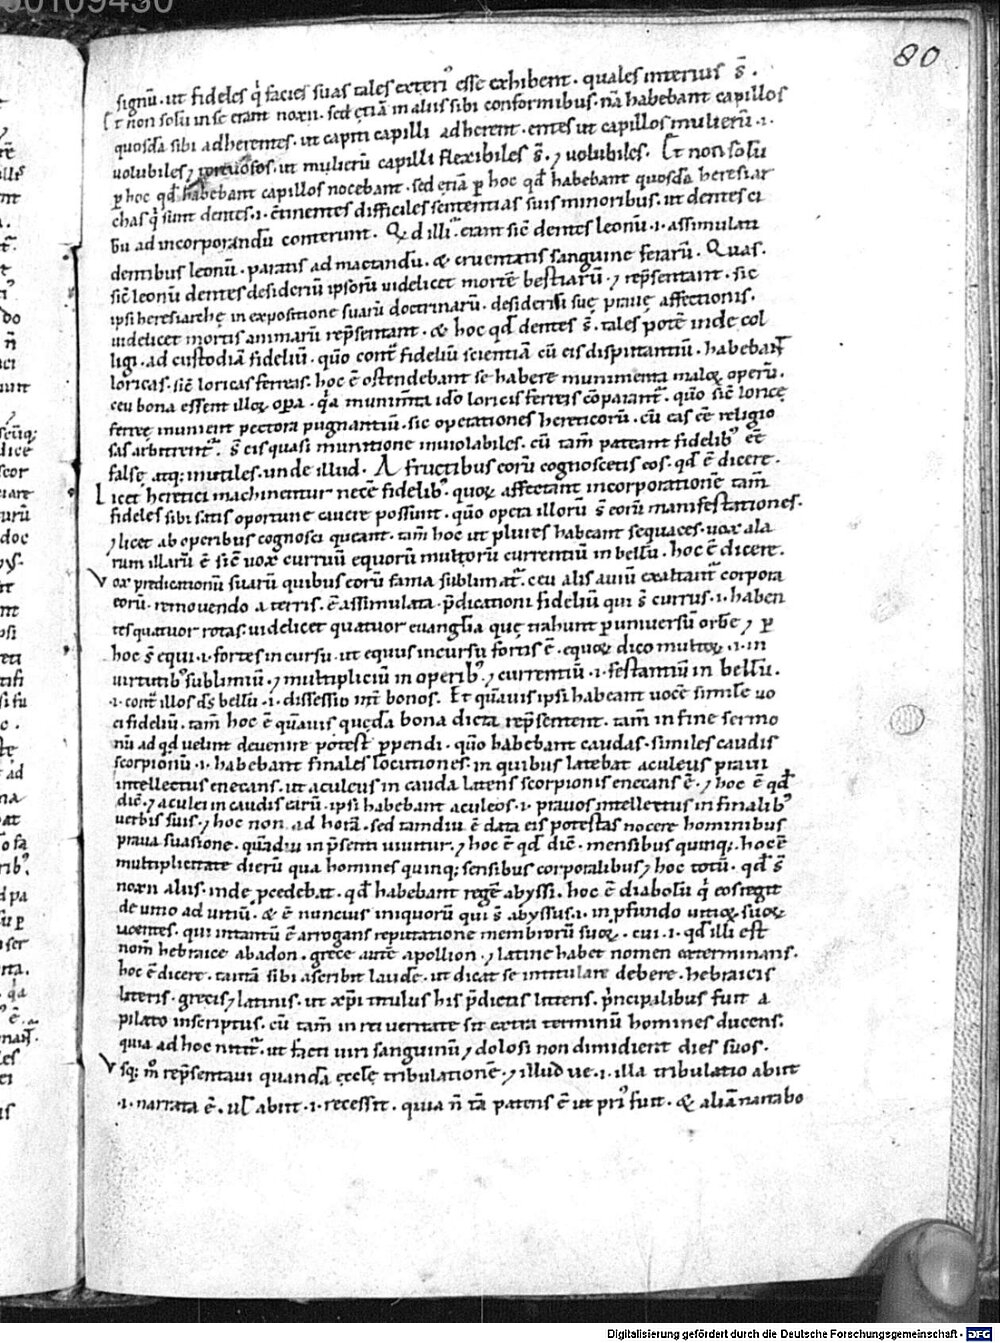 80
signū. ut fideles q̇ facies suas tales exteri᾽ esse exhibent. quales interius s̄.
Et non solū in se erant noxii. sed etiā in aliis sibi conformibus. nā habebant capillos
quosdā sibi adherentes. ut capiti capilli adherent. entes ut capillos mulierū .i.
volubiles ⁊ ut mulierū capilli flexibiles s̄. ⁊ volubiles. Et non solū
p hoc qd̄ habebant capillos nocebant. sed etiā p hoc qd̄ habebant quosdā heresiar
chas q̇ sunt dentes .i. c̄tinentes difficiles sententias suis minoribus. ut dentes ci
bū ad incorporandū conterunt. Qd illi᾽ erant sic̄ dentes leonū .i. assimulati
dentibus leonū. paratis ad mactandū. & cruentatis sanguine ferarū. Quas.
sic̄ leonū dentes desideriū ipsorū videlicet mortē bestiarū ⁊ rep̄sentant. sic
ipsi heresiarchę in expositione suarū doctrinarū. desiderii suę pravę affectionis.
videlicet mortis animarū rep̄sentant. & hoc qd̄ dentes s̄. tales potē inde col
ligi. ad custodiā fideliū. quo cont̄ fideliū scientiā cū eis disputantiū. habebant
loricas. sic̄ loricas ferreas. hoc ē ostendebant se habere munimenta maloꝝ operū.
ceu bona essent illoꝝ opa. q̇a munim̄ta ido loricis ferreis c̄parant᾽. quo sic̄ loricę
ferreę muniunt pectora pugnantiū. sic operationes hereticorū. cū eas eē religio
sas arbitrent᾽. s̄ eis quasi munitione inviolabiles. cū tam̄ pateant fidelib᾽ eē
falsę atq; inutiles. unde illud. A fructibus eorū cognoscetis eos. qd̄ ē dicere.
Licet heretici machinentur nece fidelib᾽. quoꝝ affectant incorporationē tam̄
fideles sibi satis oportune cavere possunt. quo opera illorū s̄ eorū manifestationes.
⁊ licet ab operibus cognosci queant. tam̄ hoc ut plures habeant sequaces. vox ala
rum illarū ē sic̄ vox curruū equorū multorū currentiū in bellū. hoc ē dicere.
Vox predicationū suarū quibus eorū fama sublimat᾽. ceu alis aviū exaltant᾽ corpora
eorū. removendo a terris. ē assimulata p̄dicationi fideliū qui s̄ currus .i. haben
tes quatuor rotas. videlicet quatuor evangl̄ia quę trahunt p universū orbē ⁊ p
hoc s̄ equi .i. fortes in cursu. ut equus in cursu fortis ē. equoꝝ dico multoꝝ .i. in
virtutib᾽ sublimiū. ⁊ multipliciū in operib᾽. ⁊ currentiū .i. festantiū in bellū.
.i. cont̄ illos ds̄ bellū .i. dissessio int̄ bonos. Et quāvis ipsi habeant vocē similē vo
ci fideliū. tam̄ hoc ē quāvis quędā bona dicta rep̄sentent. tam̄ in fine sermo
nū ad qd velint devenire potest ppendi. quo habebant caudas. similes caudis
scorpionū .i. habebant finales locutiones. in quibus latebat aculeus pravi
intellectus enecans. ut aculeus in cauda latens scorpionis enecans ē. ⁊ hoc ē qd̄
dic̄. ⁊ aculei in caudis earū. ipsi habebant aculeos .i. pravos intellectus in finalib᾽
verbis suis. ⁊ hoc non ad horā. sed tamdiu ē data eis potestas nocere hominibus
prava suasione. quādiu in p̄senti vivitur. ⁊ hoc ē qd̄ dic̄. mensibus quinq;. hoc ē
multiplicitate dierū qua homines quinq; sensibus corporalibus ⁊ hoc totū. qd̄ s̄
noxii aliis. inde pcedebat. qd̄ habebant regē abyssi. hoc ē diabolū q̇ eos regit
de vitio ad vitiū. & ē nuncius iniquorū qui s̄ abyssus .i. in pfundo vitioꝝ suoꝝ
iacentes. qui in tantū ē arrogans reputatione membrorū suoꝝ. cui .i. qd̄ illi est
nom̄ hebraice abadon. grece autē apollion. ⁊ latine habet nomen exterminans.
hoc ē dicere. tantā sibi ascribit laudē. ut dicat se intitulare debere. hebraicis
literis. grecis ⁊ latinis. ut xp̄i titulus his p̄dictis litteris. p̄ncipalibus fuit a
pilato inscriptus. cū tam̄ in rei veritate sit extra terminū homines ducens.
quia ad hoc nitit᾽. ut fr̄cti viri sanguinū ⁊ dolosi non dimidient dies suos.
Vsq; m̊ rep̄sentavi quandā ęcclę tribulationē. ⁊ illud ve .i. illa tribulatio abiit
.i. narrata ē. vl̄ abiit .i. recessit. quia n̄ tā patens ē ut pri᾽ fuit. & aliā narrabo
Digitalisierung gefördert durch die Deutsche Forschungsgemeinschaft - DFG